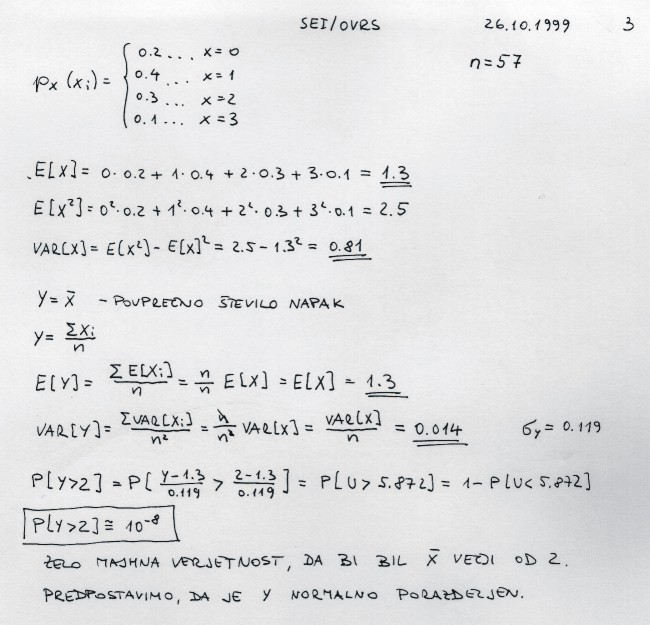 SEI/OVRS 26.10.1999 3
n=57
pₓ(xᵢ) = { 0.2... x=0
0.4... x=1
0.3... x=2
0.1... x=3
E[X] = 0·0.2 + 1·0.4 + 2·0.3 + 3·0.1 = 1.3
E[X²] = 0²·0.2 + 1²·0.4 + 2²·0.3 + 3²·0.1 = 2.5
VAR[X] = E[X²] - E[X]² = 2.5 - 1.3² = 0.81
Y = X̄ - POVPREČNO ŠTEVILO NAPAK
Y = ΣXᵢ/n
E[Y] = ΣE[Xᵢ]/n = n/n E[X] = E[X] = 1.3
VAR[Y] = ΣVAR[Xᵢ]/n² = n/n² VAR[X] = VAR[X]/n = 0.014 σᵧ = 0.119
P[Y>2] = P[(Y-1.3)/0.119 > (2-1.3)/0.119] = P[U > 5.872] = 1 - P[U < 5.872]
P[Y>2] ≅ 10⁻⁸
ZELO MAJHNA VERJETNOST, DA BI BIL X̄ VEČJI OD 2.
PREDPOSTAVIMO, DA JE Y NORMALNO PORAZDELJEN.